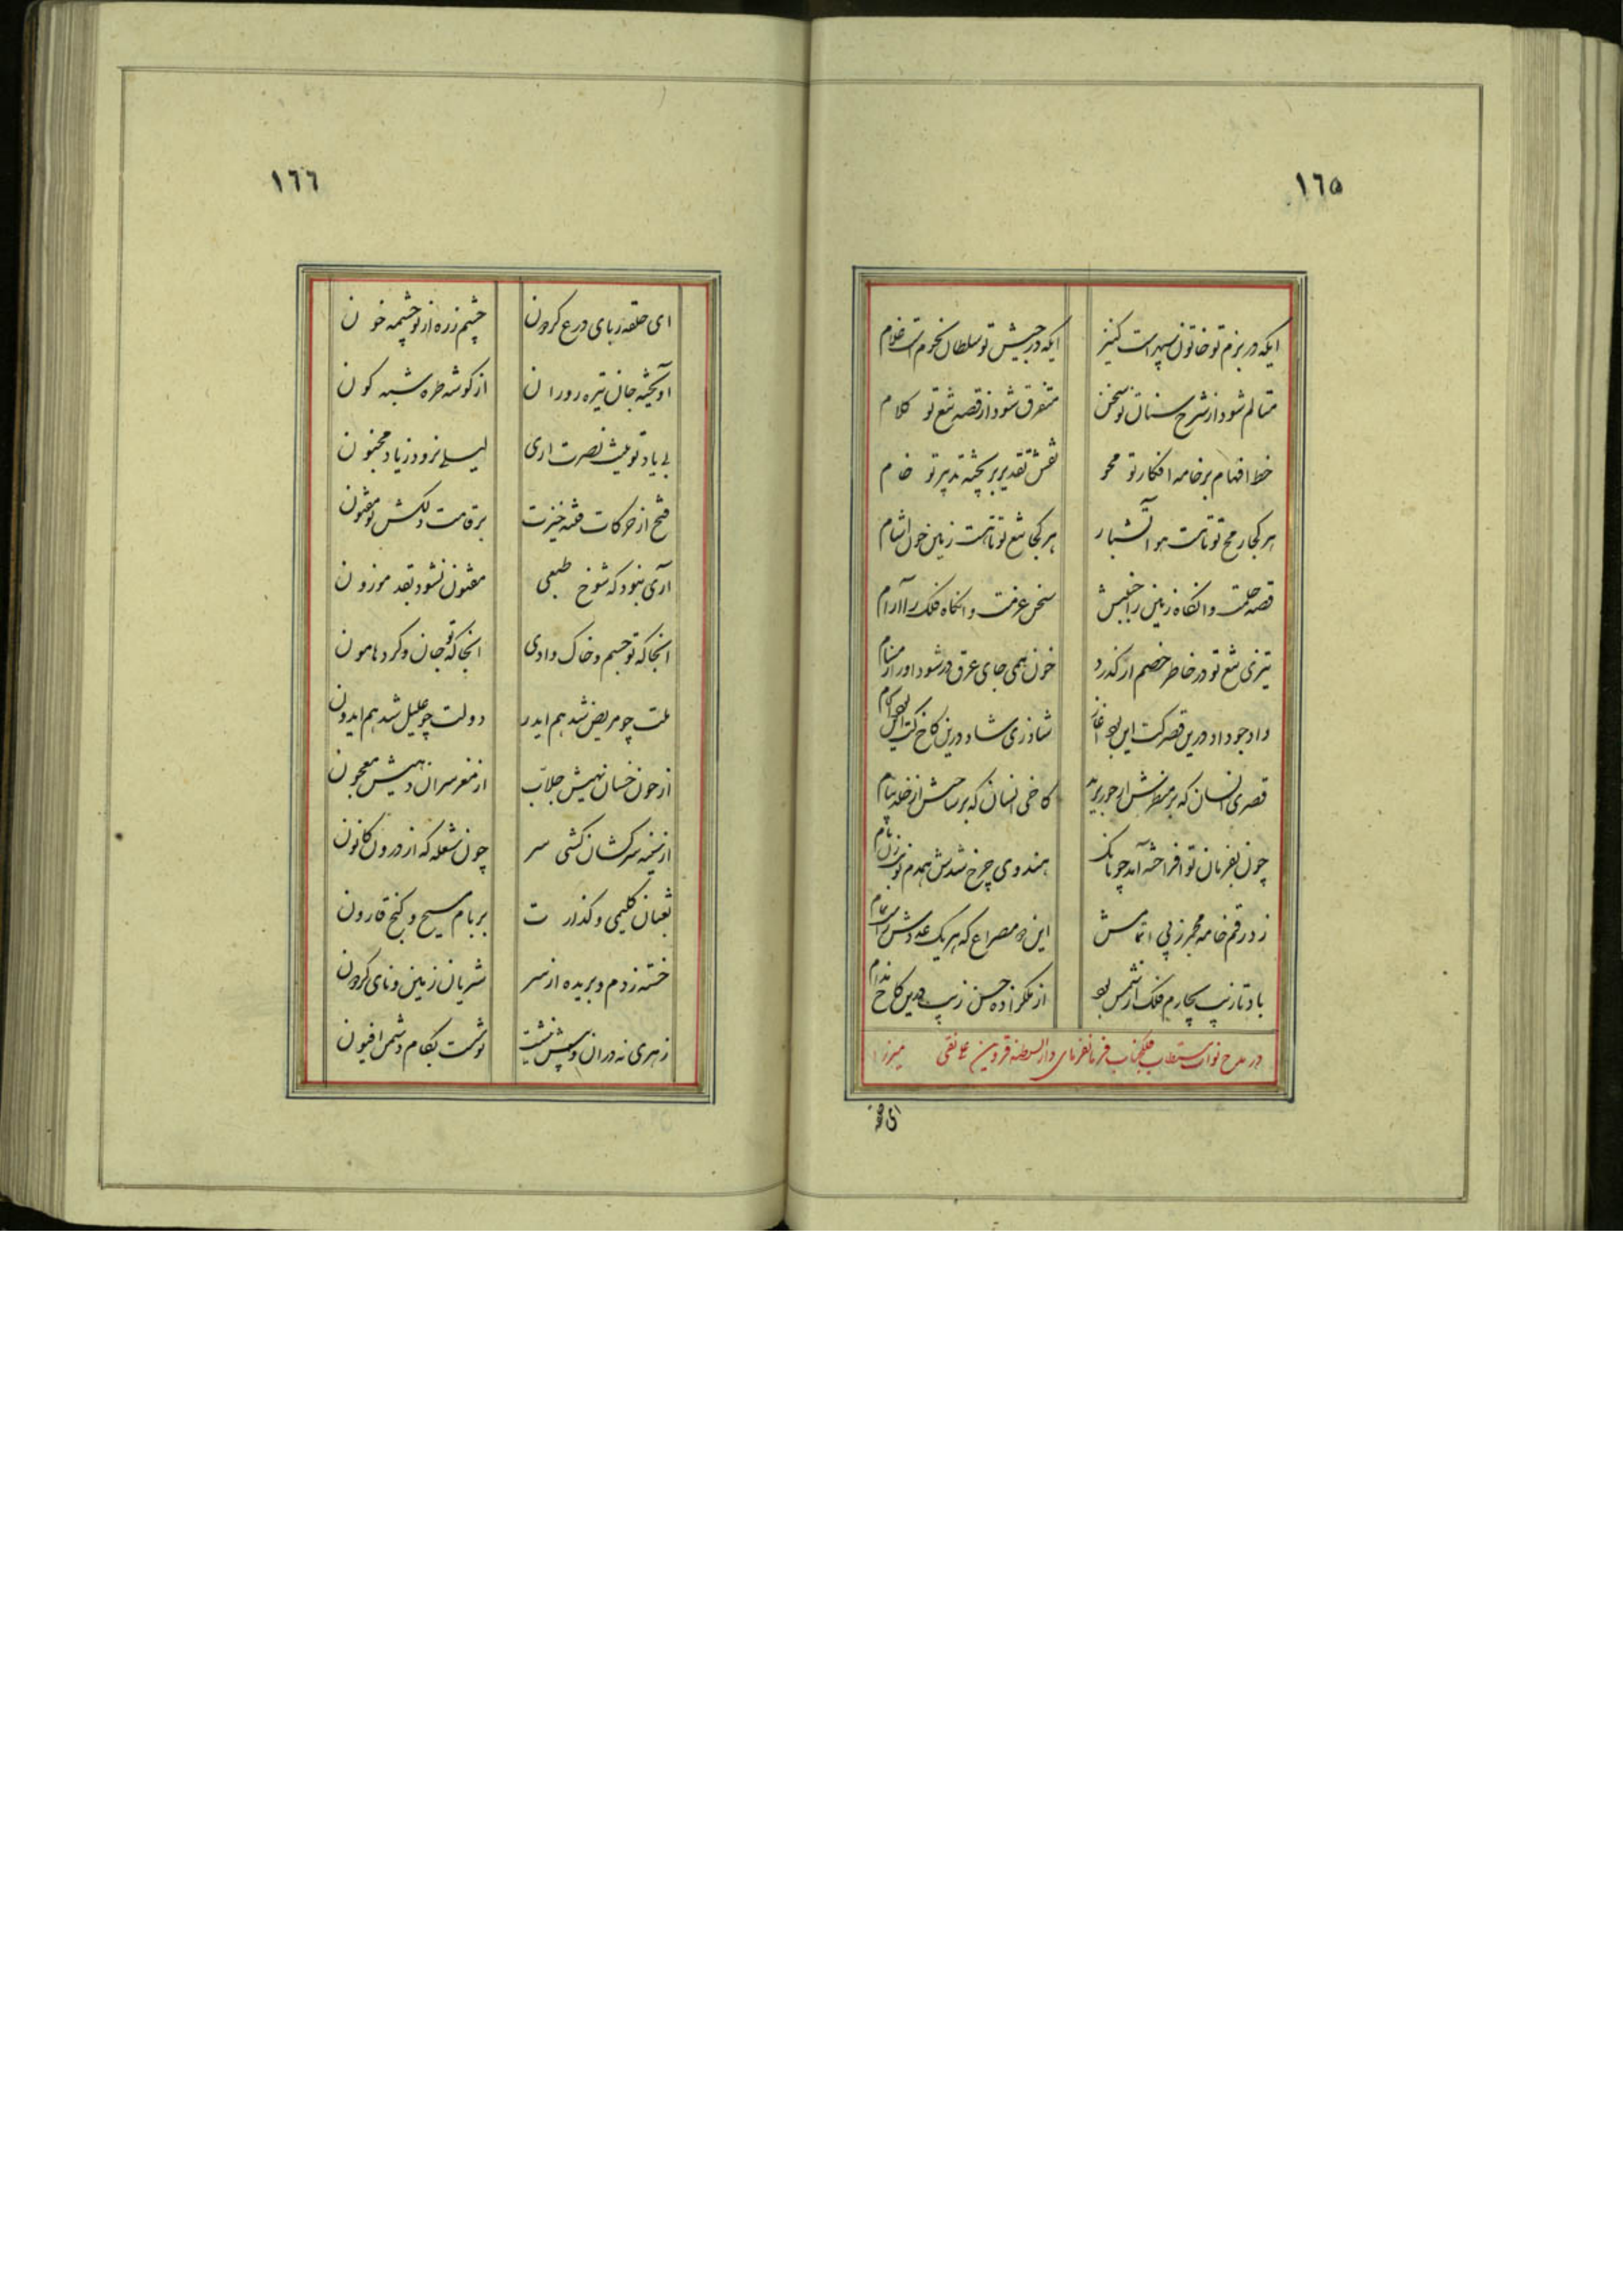 ١٦٥
ایکه در بزم تو خاتون سپهر است کنیز ایکه در جیش تو سلطان نجوم است غلام
متالم شود از شرح سنان تو سخن متفرق شود از قصه تیغ تو کلام
خط افهام بر خامه افکار تو محو نقش تقدیر بر پخته تدبیر تو خام
هر کجا رمح تو تافت هوا آتشبار هر کجا تیغ تو تافت زمین خون آشام
قصه حلمت وانگاه زمین را جنبش سخن عزمت وانگاه فلک را آرام
تیزی تیغ تو در خاطر خصم ار گذرد خون همی جای عرق در شود او را ز مسام
داد جود داد درین قصر کت این بود آغاز شاد زی شاد درین کاخ کت این بود انجام
قصری انسان که بر منظرش از حور برید کاخی انسان که بر ساحتش از خلد پیام
چون بفرمان تو افراخته آمد چو بانک هندوی چرخ شدش همدم نوبت زن بام
زد رقم خامه مجمر ز پی اتمامش این دو مصراع که هر یک عددش راست تمام
باد تا زیب چهارم فلک از شمس بود از ملکزاده حسن زیب درین کاخ مدام
در مدح نواب مستطاب فلکجناب فرمانفرمای دارالسلطنه قزوین علی نقی میرزا
ای حلقه
١٦٦
ای حلقه ربای درع گردون چشم زره از تو چشمه خون
آویخته جان تیره روزان از گوشه طره شبه گون
بی یاد تو نیست نصرت آری لیلی نرود ز یاد مجنون
فتح از حرکات فتنه خیزت بر قامت دلکش تو مفتون
آری نبود که شوخ طبعی مفتون نشود بقد موزون
انجا که تو جسم و خاک وادی انجا که تو جان و گرد هامون
ملت چو مریض شد هم ایدر دولت چو علیل شد هم ایدون
از خون خسان نهیش جلاب از مغز سران دهیش معجون
از سینه سرکشان کشی سر چون شعله که از درون کانون
ثعبان کلیمی و گذارت بر بام مسیح و گنج قارون
خسته ز دم و بریده از سر شریان زمین و نای گردون
زهری نه دران و پیش نیشت نوشست بکام دشمن افیون